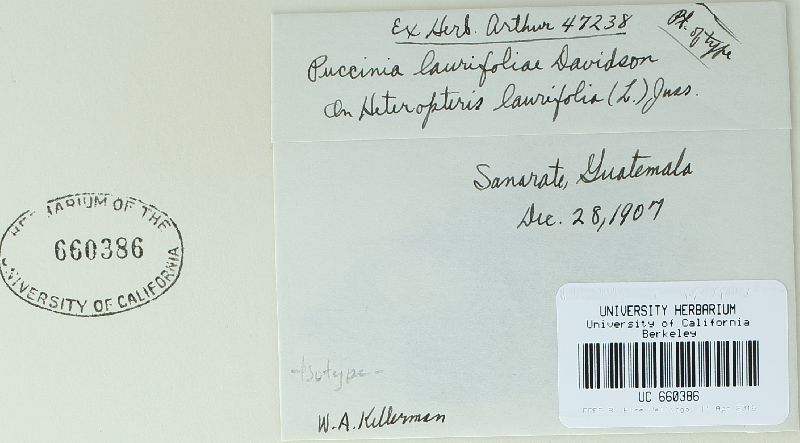 Ex Herb. Arthur 47238
Pt. of type
Puccinia laurifoliae Davidson
On Heteropteris laurifolia (L.) Juss.
Sanarate, Guatemala
Dec. 28, 1907
HERBARIUM OF THE
660386
UNIVERSITY OF CALIFORNIA
UNIVERSITY HERBARIUM
University of California
Berkeley
UC 660386
-Isotype-
W.A. Kellerman